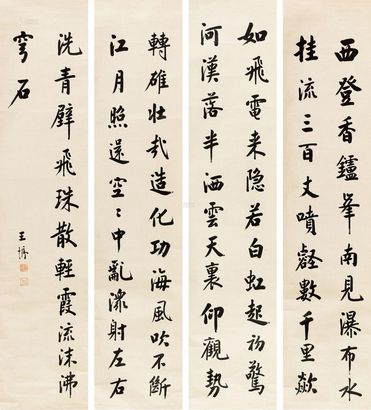 西登香鑪峯南見瀑布水
挂流三百丈噴壑數千里歘
如飛電来隐若白虹起初驚
河漢落半洒雲天裏仰觀勢
轉雄壮哉造化功海風吹不斷
江月照還空〻中亂潈射左右
洗青壁飛珠散輕霞流沫沸
穹石
王